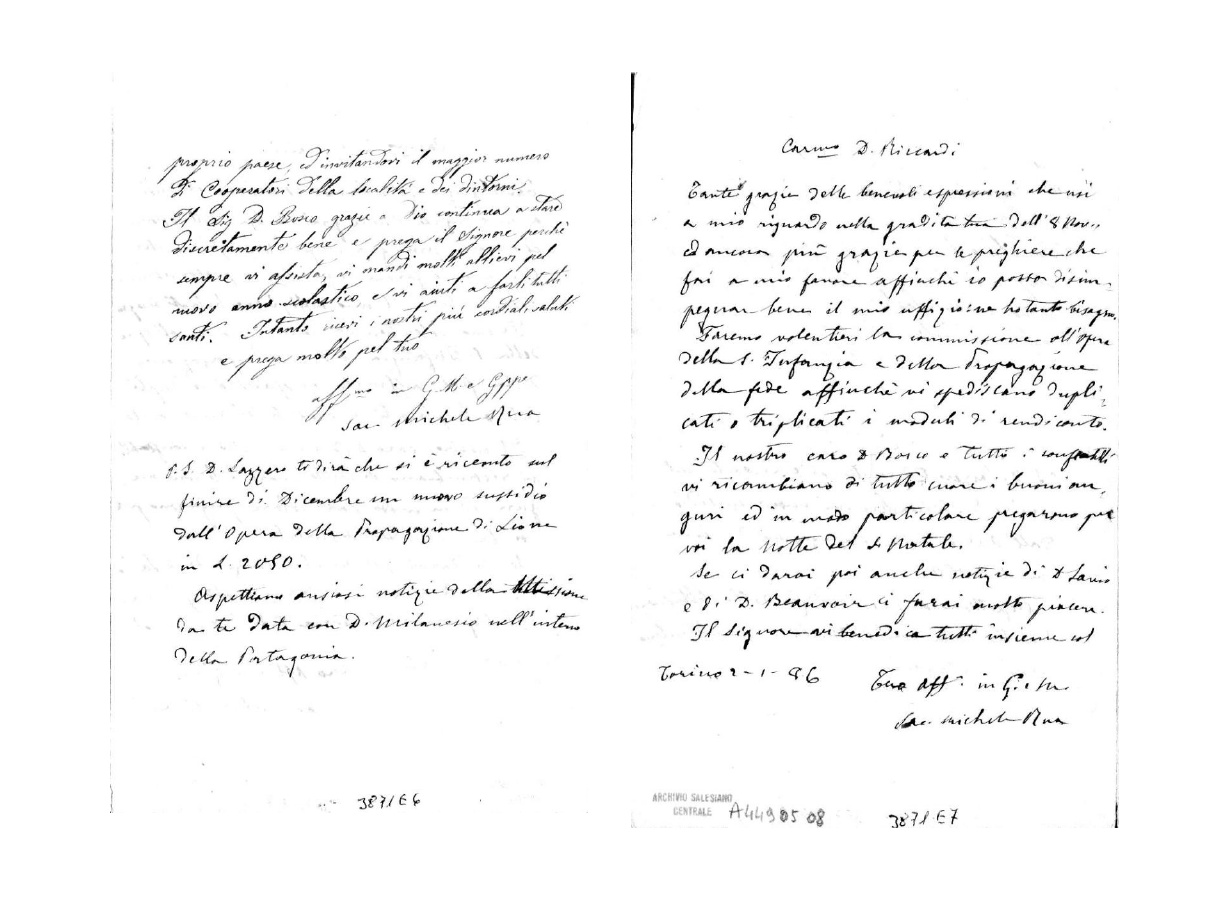 proprio paese, d'invitandovi il maggior numero
di Cooperatori della località e dei dintorni.
Il Sig D. Bosco grazie a Dio continua a stare
discretamente bene e prega il Signore perchè
sempre vi assista, vi mandi molti allievi pel
nuovo anno scolastico, e vi aiuti a farli tutti
santi. Intanto ricevi i nostri più cordiali saluti
e prega molto pel tuo
aff.mo in G. M. e Gppe
Sac. Michele Rua
P.S. D. Lazzero ti dirà che si è ricevuto sul
finire di Dicembre un nuovo sussidio
dall'Opera della Propagazione di Lione
in L. 2050.
Aspettiamo ansiosi notizie della Missione
da te data con D. Milanesio nell'interno
della Patagonia.
3871E6
Carmo D. Riccardi
Tante grazie delle benevoli espressioni che usi
a mio riguardo nella gradita tua dell'8 Nov.
ed ancora più grazie per le preghiere che
fai a mio favore affinchè io possa disim-
pegnar bene il mio uffizio: ne ho tanto bisogno.
Faremo volentieri la commissione all'Opera
della S. Infanzia e della Propagazione
della fede affinchè vi spediscano dupli-
cati o triplicati i moduli di rendiconto.
Il nostro caro D Bosco e tutti i confratelli
vi ricambiano di tutto cuore i buoni au-
guri ed in modo particolare pregarono per
voi la notte del S. Natale.
Se ci darai poi anche notizie di D Savio
e di D. Beauvoir ci farai molto piacere.
Il Signore vi benedica tutti insieme col
Torino 2-1-86
Tuo Aff. in G. e M.
Sac. Michele Rua
ARCHIVIO SALESIANO
CENTRALE
A4490508
3871E7